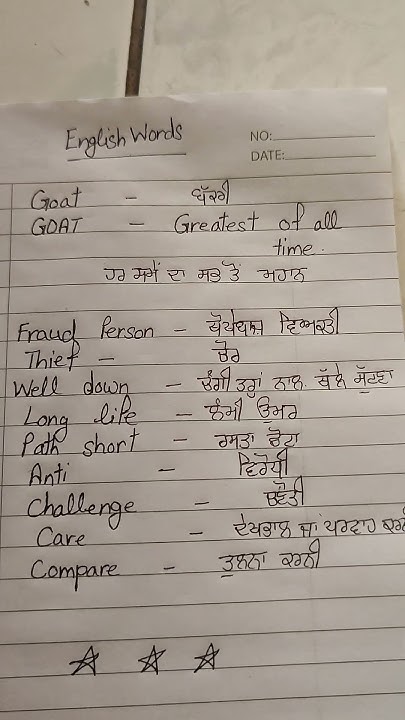 English Words
NO:
DATE:
Goat - ਬੱਕਰੀ
GOAT - Greatest of all
time.
ਹਰ ਸਮੇਂ ਦਾ ਸਭ ਤੋਂ ਮਹਾਨ
Fraud Person - ਧੋਖੇਬਾਜ਼ ਵਿਅਕਤੀ
Thief - ਚੋਰ
Well down - ਚੰਗੀ ਤਰ੍ਹਾਂ ਨਾਲ, ਥੱਲੇ ਸੁੱਟਣਾ
Long life - ਲੰਮੀ ਉਮਰ
Path short - ਰਸਤਾ ਛੋਟਾ
Anti - ਵਿਰੋਧੀ
Challenge - ਚਣੌਤੀ
Care - ਦੇਖਭਾਲ ਜਾਂ ਪਰਵਾਹ
Compare - ਤੁਲਨਾ ਕਰਨੀ